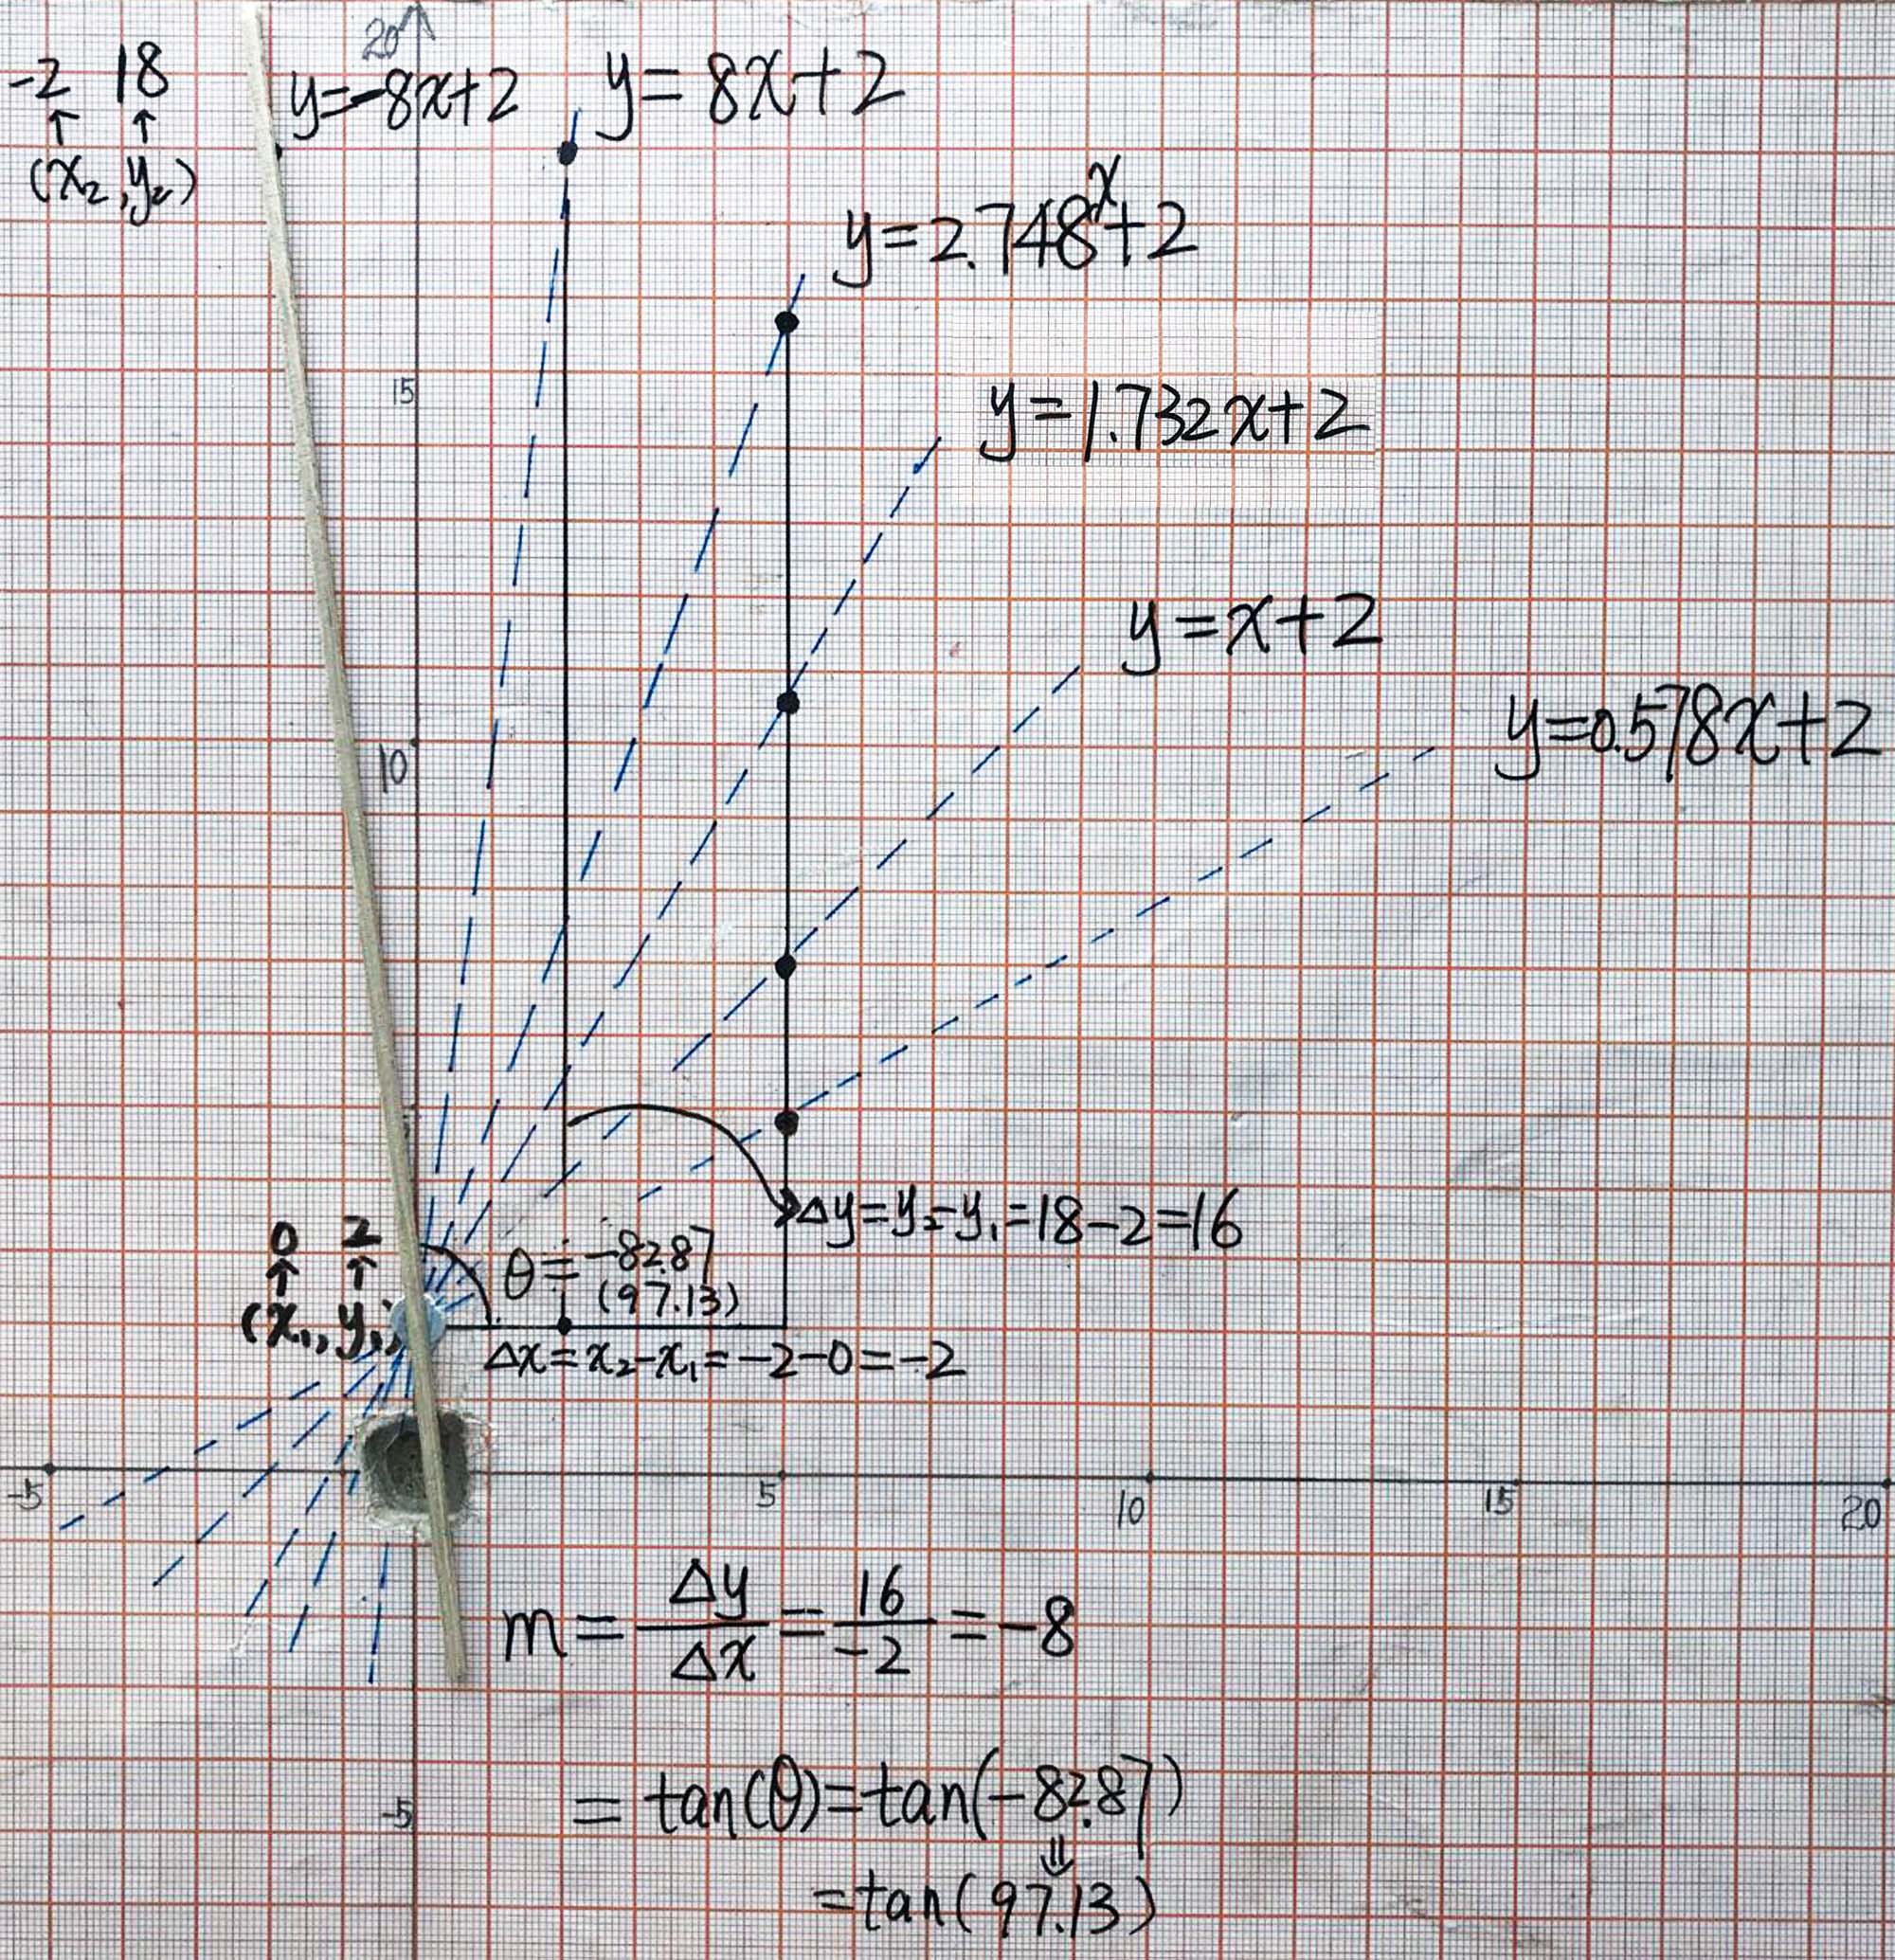 20
-2 18
↑ ↑
(x₂,y₂)
y=-8x+2
y=8x+2
y=2.748ˣ+2
15
y=1.732x+2
y=x+2
y=0.578x+2
10
5
Δy=y₂-y₁=18-2=16
0 2
↑ ↑
(x₁,y₁)
θ=-82.87
(97.13)
Δx=x₂-x₁=-2-0=-2
-5 5 10 15 20
m=Δy/Δx=16/-2=-8
-5
=tan(θ)=tan(-82.87)
⇓
=tan(97.13)